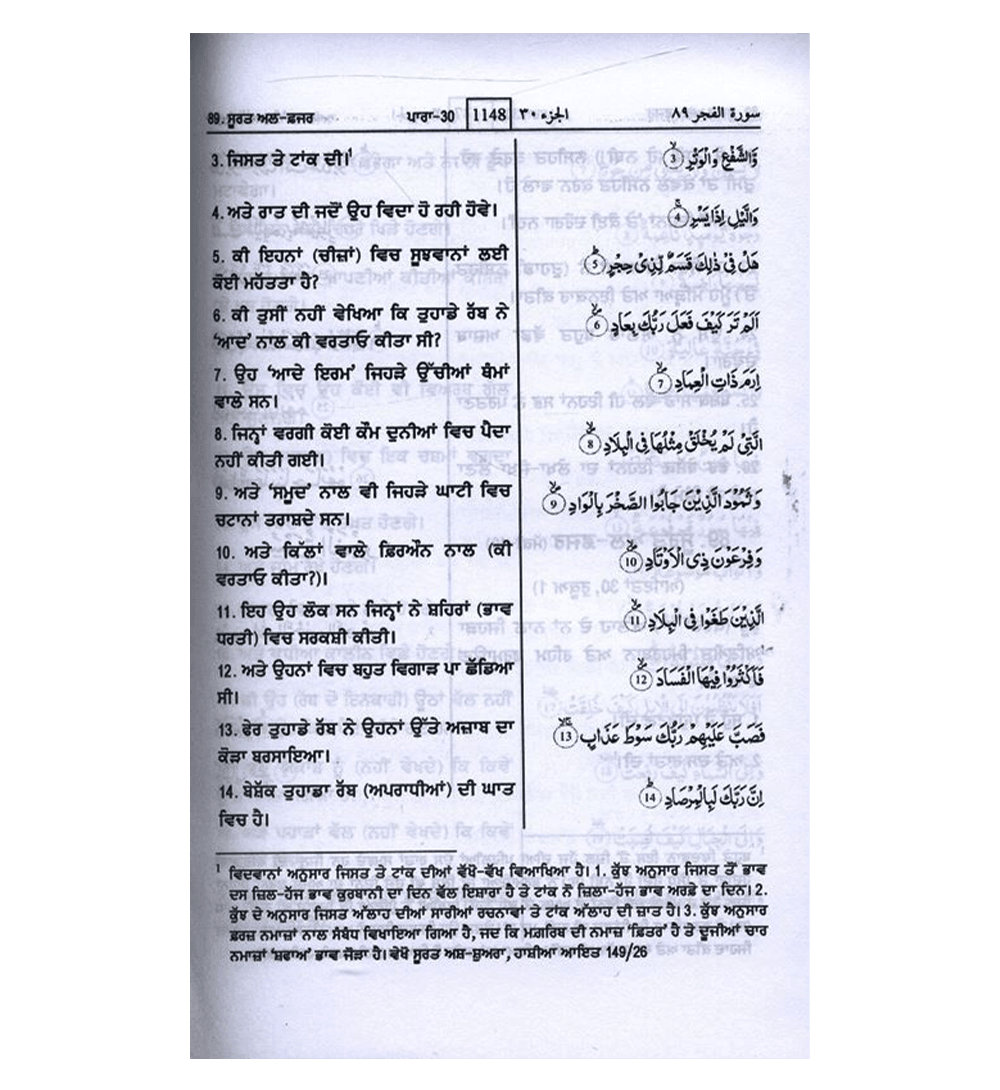 89. ਸੂਰਤ ਅਲ-ਫ਼ਜਰ ਪਾਰਾ-30 1148 الجزء ٣٠ سورة الفجر ٨٩
3. ਜਿਸਤ ਤੇ ਟਾਂਕ ਦੀ।¹
4. ਅਤੇ ਰਾਤ ਦੀ ਜਦੋਂ ਉਹ ਵਿਦਾ ਹੋ ਰਹੀ ਹੋਵੇ।
5. ਕੀ ਇਹਨਾਂ (ਚੀਜ਼ਾਂ) ਵਿਚ ਸੂਝਵਾਨਾਂ ਲਈ
ਕੋਈ ਮਹੱਤਤਾ ਹੈ?
6. ਕੀ ਤੁਸੀਂ ਨਹੀਂ ਵੇਖਿਆ ਕਿ ਤੁਹਾਡੇ ਰੱਬ ਨੇ
‘ਆਦ’ ਨਾਲ ਕੀ ਵਰਤਾਓ ਕੀਤਾ ਸੀ?
7. ਉਹ ‘ਆਦੇ ਇਰਮ’ ਜਿਹੜੇ ਉੱਚੀਆਂ ਥੰਮਾਂ
ਵਾਲੇ ਸਨ।
8. ਜਿਨ੍ਹਾਂ ਵਰਗੀ ਕੋਈ ਕੌਮ ਦੁਨੀਆਂ ਵਿਚ ਪੈਦਾ
ਨਹੀਂ ਕੀਤੀ ਗਈ।
9. ਅਤੇ ‘ਸਮੂਦ’ ਨਾਲ ਵੀ ਜਿਹੜੇ ਘਾਟੀ ਵਿਚ
ਚਟਾਨਾਂ ਤਰਾਸ਼ਦੇ ਸਨ।
10. ਅਤੇ ਕਿੱਲਾਂ ਵਾਲੇ ਫ਼ਿਰਔਨ ਨਾਲ (ਕੀ
ਵਰਤਾਓ ਕੀਤਾ?)।
11. ਇਹ ਉਹ ਲੋਕ ਸਨ ਜਿਨ੍ਹਾਂ ਨੇ ਸ਼ਹਿਰਾਂ (ਭਾਵ
ਧਰਤੀ) ਵਿਚ ਸਰਕਸ਼ੀ ਕੀਤੀ।
12. ਅਤੇ ਉਹਨਾਂ ਵਿਚ ਬਹੁਤ ਵਿਗਾੜ ਪਾ ਛੱਡਿਆ
ਸੀ।
13. ਫੇਰ ਤੁਹਾਡੇ ਰੱਬ ਨੇ ਉਹਨਾਂ ਉੱਤੇ ਅਜ਼ਾਬ ਦਾ
ਕੋੜਾ ਬਰਸਾਇਆ।
14. ਬੇਸ਼ੱਕ ਤੁਹਾਡਾ ਰੱਬ (ਅਪਰਾਧੀਆਂ) ਦੀ ਘਾਤ
ਵਿਚ ਹੈ।
وَّالشَّفْعِ وَالْوَتْرِ ③
وَالَّيْلِ اِذَا يَسْرِ ④
هَلْ فِىْ ذٰلِكَ قَسَمٌ لِّذِىْ حِجْرٍ ⑤
اَلَمْ تَرَ كَيْفَ فَعَلَ رَبُّكَ بِعَادٍ ⑥
اِرَمَ ذَاتِ الْعِمَادِ ⑦
الَّتِىْ لَمْ يُخْلَقْ مِثْلُهَا فِى الْبِلَادِ ⑧
وَثَمُوْدَ الَّذِيْنَ جَابُوا الصَّخْرَ بِالْوَادِ ⑨
وَفِرْعَوْنَ ذِى الْاَوْتَادِ ⑩
الَّذِيْنَ طَغَوْا فِى الْبِلَادِ ⑪
فَاَكْثَرُوْا فِيْهَا الْفَسَادَ ⑫
فَصَبَّ عَلَيْهِمْ رَبُّكَ سَوْطَ عَذَابٍ ⑬
اِنَّ رَبَّكَ لَبِالْمِرْصَادِ ⑭
¹ ਵਿਦਵਾਨਾਂ ਅਨੁਸਾਰ ਜਿਸਤ ਤੇ ਟਾਂਕ ਦੀਆਂ ਵੱਖੋ-ਵੱਖ ਵਿਆਖਿਆ ਹੈ। 1. ਕੁੱਝ ਅਨੁਸਾਰ ਜਿਸਤ ਤੋਂ ਭਾਵ
ਦਸ ਜ਼ਿਲ-ਹੱਜ ਭਾਵ ਕੁਰਬਾਨੀ ਦਾ ਦਿਨ ਵੱਲ ਇਸ਼ਾਰਾ ਹੈ ਤੇ ਟਾਂਕ ਨੌਂ ਜ਼ਿਲਾ-ਹੱਜ ਭਾਵ ਅਰਫ਼ੇ ਦਾ ਦਿਨ। 2.
ਕੁੱਝ ਦੇ ਅਨੁਸਾਰ ਜਿਸਤ ਅੱਲਾਹ ਦੀਆਂ ਸਾਰੀਆਂ ਰਚਨਾਵਾਂ ਤੇ ਟਾਂਕ ਅੱਲਾਹ ਦੀ ਜ਼ਾਤ ਹੈ। 3. ਕੁੱਝ ਅਨੁਸਾਰ
ਫ਼ਰਜ਼ ਨਮਾਜ਼ਾਂ ਨਾਲ ਸੰਬੰਧ ਵਿਖਾਇਆ ਗਿਆ ਹੈ, ਜਦ ਕਿ ਮਗ਼ਰਿਬ ਦੀ ਨਮਾਜ਼ ‘ਫ਼ਿਤਰ’ ਹੈ ਤੇ ਦੂਜੀਆਂ ਚਾਰ
ਨਮਾਜ਼ਾਂ ‘ਸ਼ਫਾਅ’ ਭਾਵ ਜੌੜਾ ਹੈ। ਵੇਖੋ ਸੂਰਤ ਅਸ਼-ਸ਼ੁਅਰਾ, ਹਾਸ਼ੀਆ ਆਇਤ 149/26